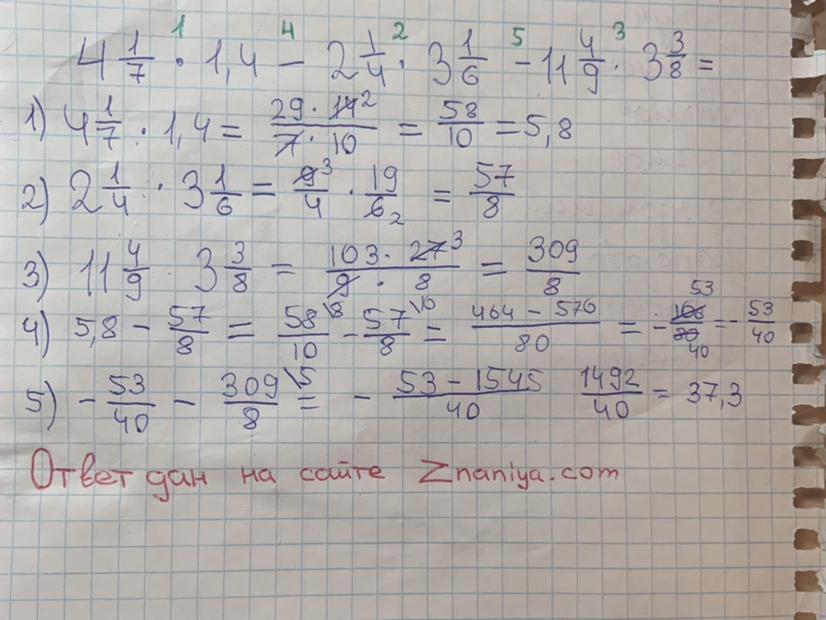 1 4 2 5 3
4 1/7 · 1,4 − 2 1/4 · 3 1/6 − 11 4/9 · 3 3/8 =
1) 4 1/7 · 1,4 = 29 · 14 2 / 7 · 10 = 58/10 = 5,8
2) 2 1/4 · 3 1/6 = 9 3/4 · 19/6 2 = 57/8
3) 11 4/9 · 3 3/8 = 103 · 27 3 / 9 · 8 = 309/8
4) 5,8 − 57/8 = 58\8/10 − 57\10/8 = 464 − 570/80 = − 106 53/80 40 = − 53/40
5) − 53/40 − 309\5/8 = − 53 − 1545/40 1492/40 = 37,3
Ответ дан на сайте Znaniya.com